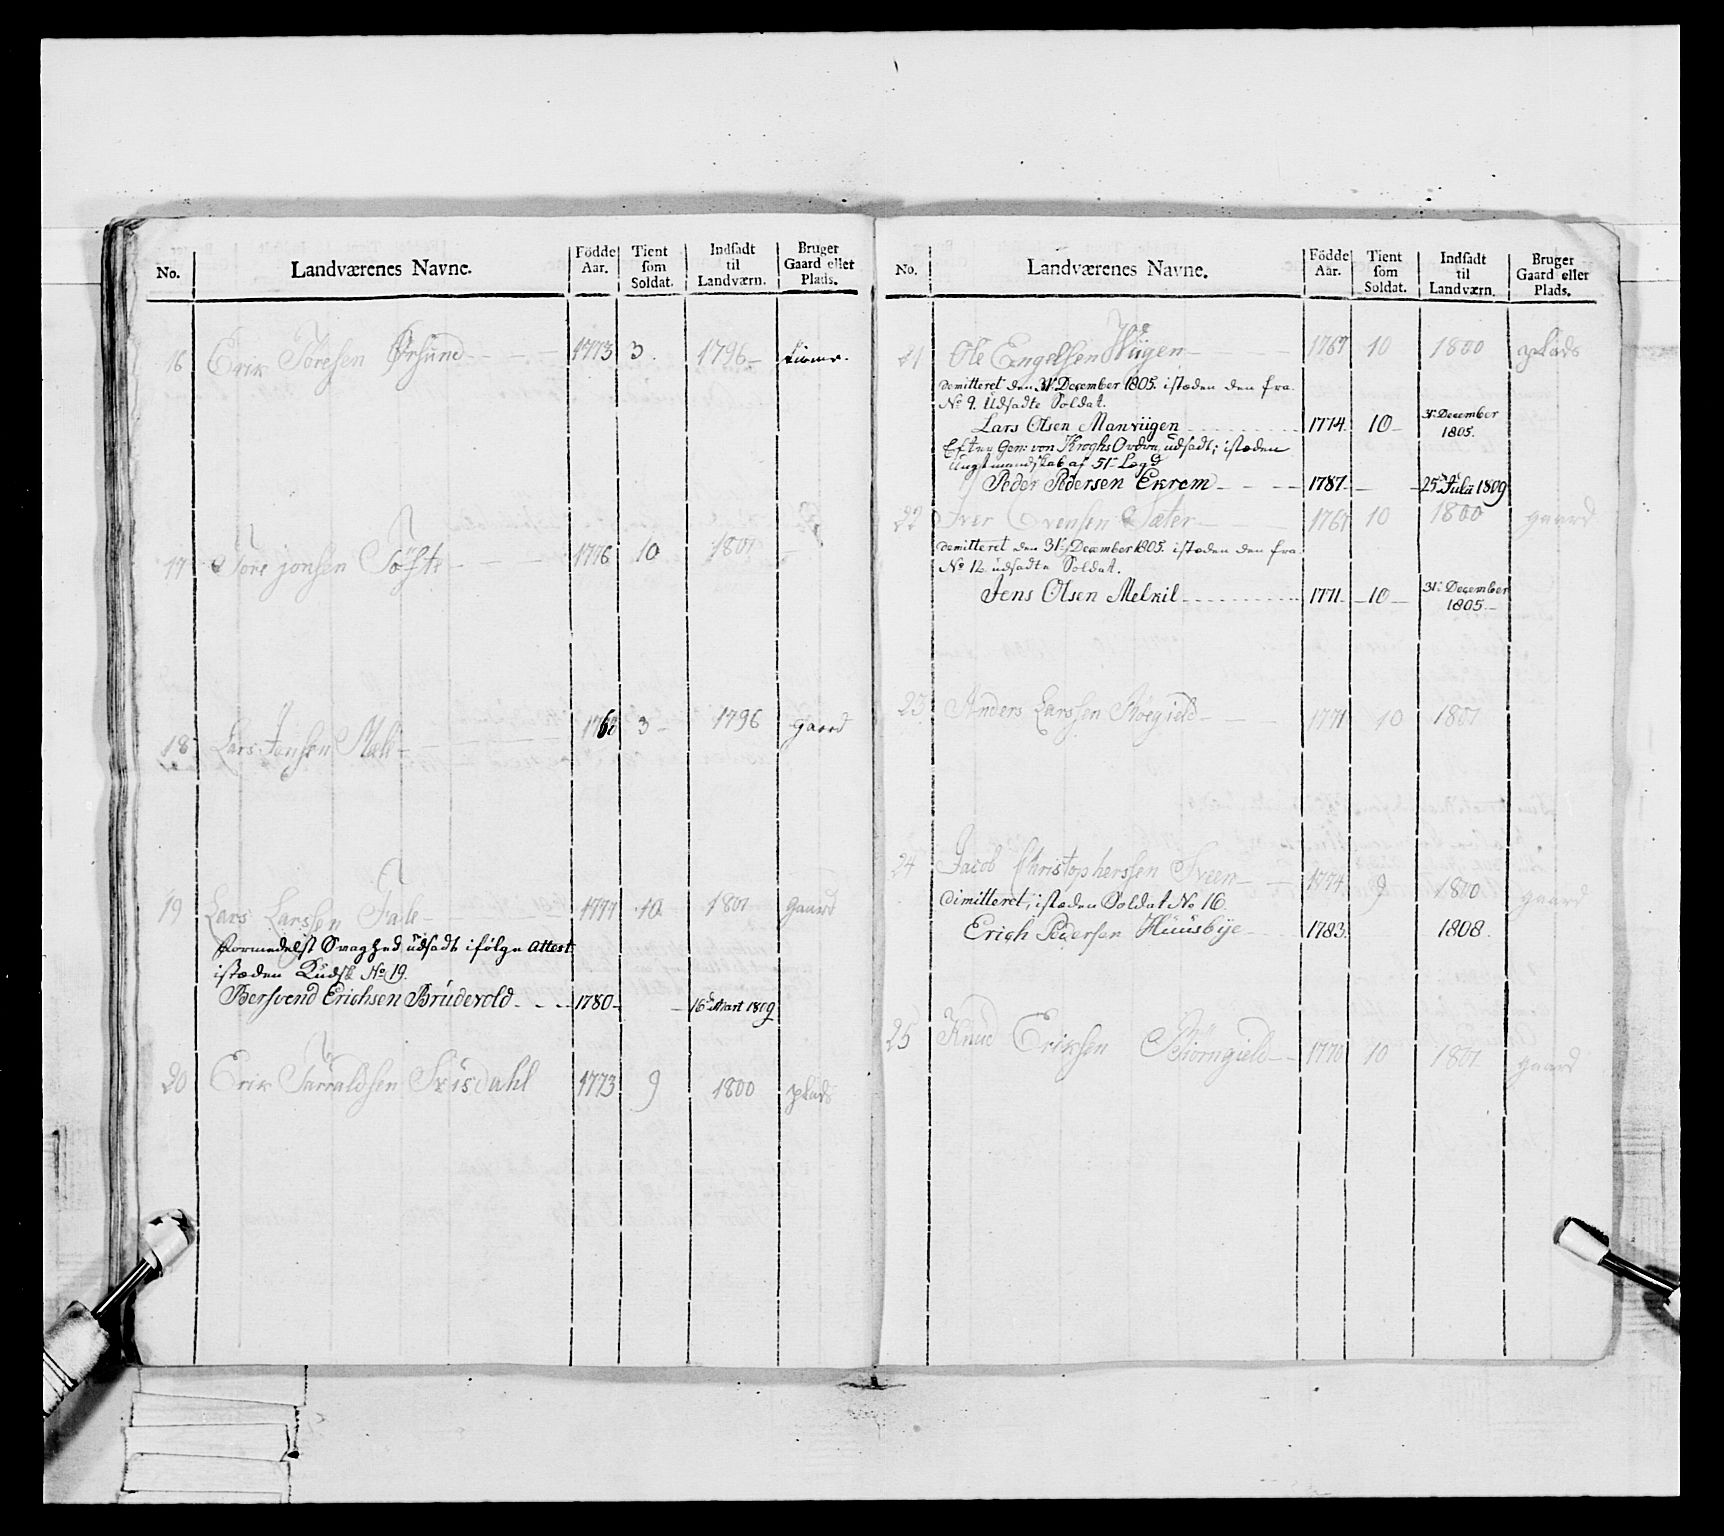 No. Landværenes Navne. Fødde Aar. Tient som Soldat. Indsadt til Landværn. Bruger Gaard eller Plads.
16 Erik Toresen Ørsund 1773 3. 1796
17 Tore jonsen Tøfte 1776 10 1801
18 Lars Jonsen Mæle 1768 3 1796 gaard
19 Lars Larssen Fale 1777 10 1801 Gaard
Formedelst Svaghed udsadt ifølge Attest
istæden Kudsk No 19.
Bersvend Erichsen Brüdevold 1780 16de Mart 1809
20 Erik Taraldsen Svisdahl 1773 9 1800 plads
No. Landværenes Navne. Fødde Aar. Tient som Soldat. Indsadt til Landværn. Bruger Gaard eller Plads.
21 Ole Engelsen 1767 10 1800 plads
demitteret den 31te December 1805. istæden den fra
No 9. Udsadte Soldat.
Lars Olsen Manviigen 1774 10 31te December 1805.
Efter Gen: von Kroghs Ordre, udsadt; istæden
ungt mandskab af 51te Lægd
Peder Pedersen Ekrem 1787 25de Julii 1809
22 Iver Evensen Sæter 1767 10 1800 gaard
demitteret den 31te December 1805. istæden den fra
No 12 udsadte Soldat.
Jens Olsen Melkil 1771 10 31te December 1805
23 Anders Larssen 1771 10 1801
24 Jacob Christopherssen Sveen 1774 9 1800 gaard
dimitteret, istæden Soldat No 16.
Erich Pedersen Huusbye 1783. 1808.
25 Knud Eriksen 1770 10 1801 gaard